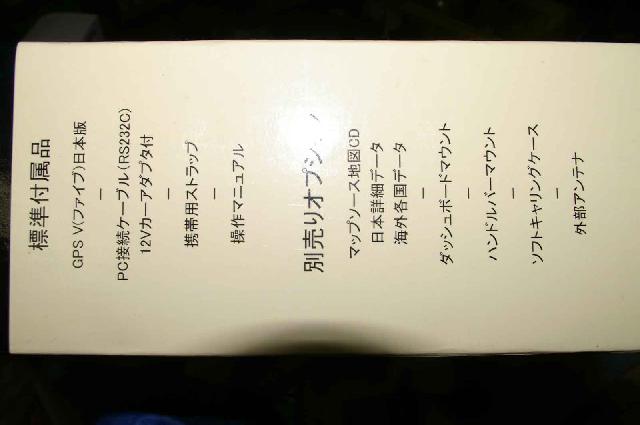 標準付属品
GPS V(ファイブ)日本版
–
PC接続ケーブル(RS232C)
12Vカーアダプタ付
–
携帯用ストラップ
–
操作マニュアル
別売りオプション
マップソース地図CD
日本詳細データ
海外各国データ
–
ダッシュボードマウント
–
ハンドルバーマウント
–
ソフトキャリングケース
–
外部アンテナ